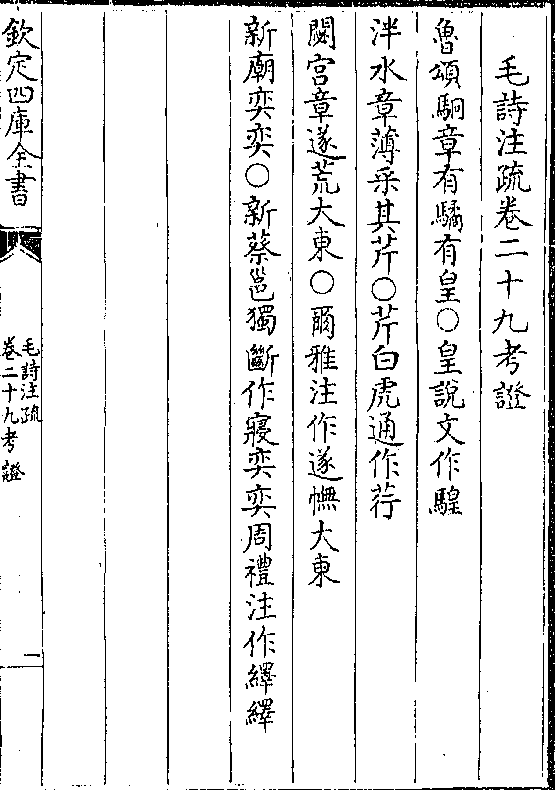 毛詩注疏卷二十九考證
魯頌駉章有驈有皇○皇說文作騜
泮水章薄采其芹○芹白虎通作荇
閟宮章遂荒大東○爾雅注作遂憮大東
新廟奕奕○新蔡邕獨斷作寢奕奕周禮注作繹繹
欽定四庫全書
毛詩注疏
卷二十九考證
一